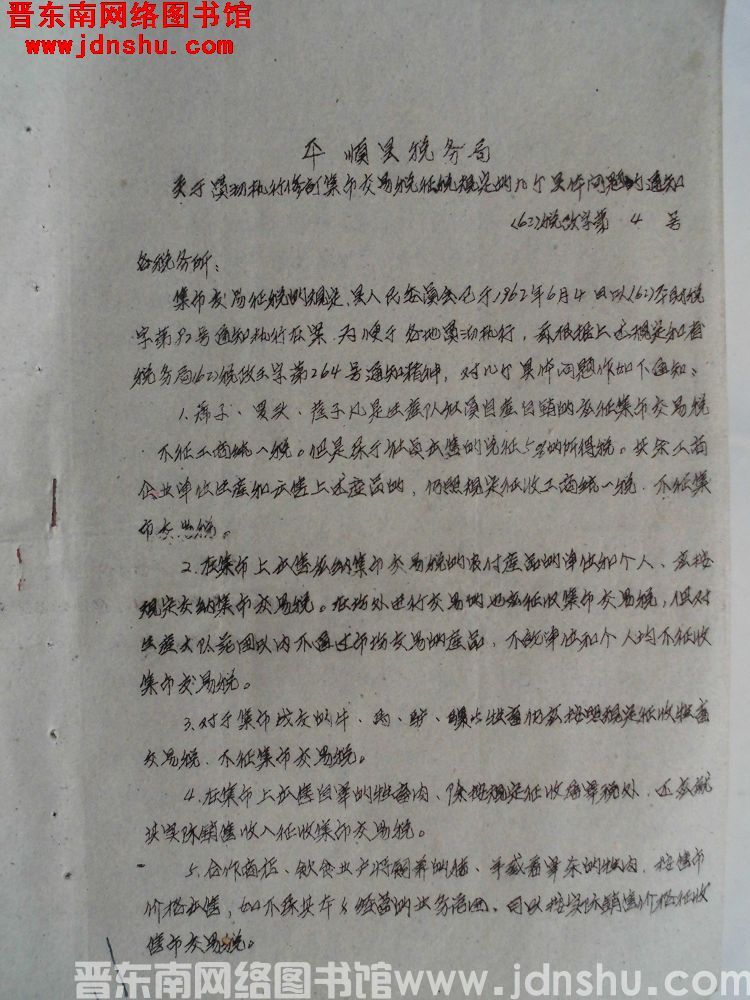 晋东南网络图书馆
www.jdnshu.com
平顺县税务局
关于贯彻执行修订集市交易税征税规定的几个具体问题的通知
(62)税政字第 4 号
各税务所：
集市交易征税的规定、县人民委员会已于1962年6月4日以(62)平财税
字第82号通知执行在案、为便于各地贯彻执行，兹根据上述规定和省
税务局(62)税政王字第264号通知精神，对几个具体问题作如下通知：
1.席子、 子凡是生产队社员自产自销的应征集市交易税
不征工商统一税。但是 于社员出售的免征5%的所得税。其余工商
企业单位生产和出售上述产品的，仍照规定征收工商统一税、不征集
市交易税。
2.在集市上出售应纳集市交易税的农付产品的单位和个人、应按
规定交纳集市交易税。在场外进行交易的也应征收集市交易税，但对
生产大队范围以内不通过市场交易的产品，不论单位和个人均不征收
集市交易税。
3.对于集市成交的牛、马、驴、骡 牲畜仍应按照规定征收牲畜
交易税、不征集市交易税。
4.在集市上出售自宰的牲畜肉、除按规定征收屠宰税外，还应就
其实际销售收入征收集市交易税。
5.合作商店、饮食业户将饲养的猪、羊或者宰杀的牲肉，按集市
价格出售，如不 其本身经营的业务范围、可以按实际销售价格征收
集市交易税。
晋东南网络图书馆www.jdnshu.com